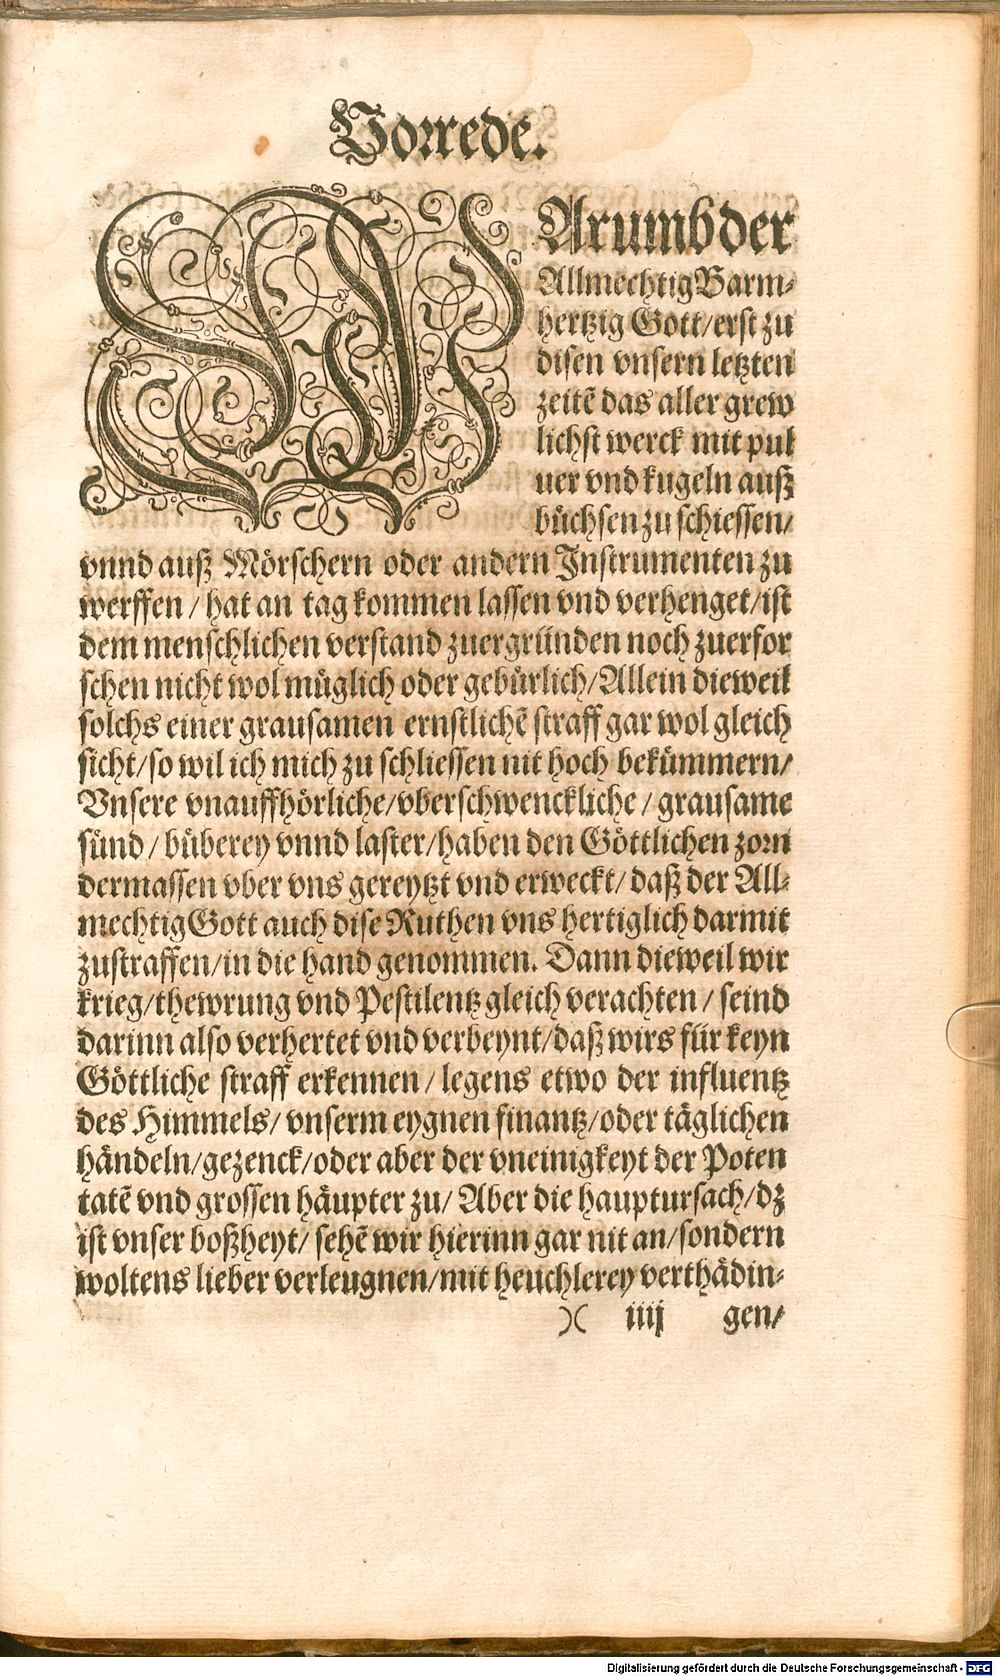 Vorrede.
WArumb der
Allmechtig Barm⸗
hertzig Gott/erst zu
disen vnsern letzten
zeitē das aller grew
lichst werck mit pul
uer vnd kugeln auß
büchsen zu schiessen/
vnnd auß Mörschern oder andern Instrumenten zu
werffen/hat an tag kommen lassen vnd verhenget/ist
dem menschlichen verstand zuergründen noch zuerfor
schen nicht wol müglich oder gebürlich/Allein dieweil
solchs einer grausamen ernstlichē straff gar wol gleich
sicht/so wil ich mich zu schliessen nit hoch bekümmern/
Vnsere vnauffhörliche/vberschwenckliche/grausame
sünd/büberey vnnd laster/haben den Göttlichen zorn
dermassen vber vns gereytzt vnd erweckt/daß der All⸗
mechtig Gott auch dise Ruthen vns hertiglich darmit
zustraffen/in die hand genommen. Dann dieweil wir
krieg/thewrung vnd Pestilentz gleich verachten/seind
darinn also verhertet vnd verbeynt/daß wirs für keyn
Göttliche straff erkennen/legens etwo der influentz
des Himmels/vnserm eygnen finantz/oder täglichen
händeln/gezenck/oder aber der vneinigkeyt der Poten
tatē vnd grossen häupter zu/Aber die hauptursach/dz
ist vnser boßheyt/sehē wir hierinn gar nit an/sondern
woltens lieber verleugnen/mit heuchlerey verthädin⸗
)( iiij gen/
Digitalisierung gefördert durch die Deutsche Forschungsgemeinschaft - DFG